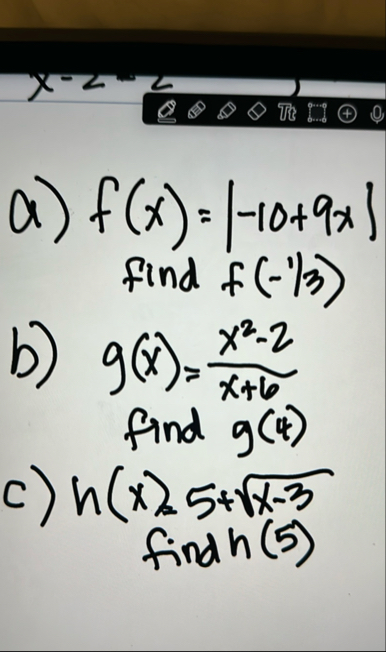 x-2=2
Tt
a) f(x)=|-10+9x|
find f(-1/3)
b) g(x)= x²-2
x+6
find g(4)
c) h(x)= 5+√x-3
find h(5)